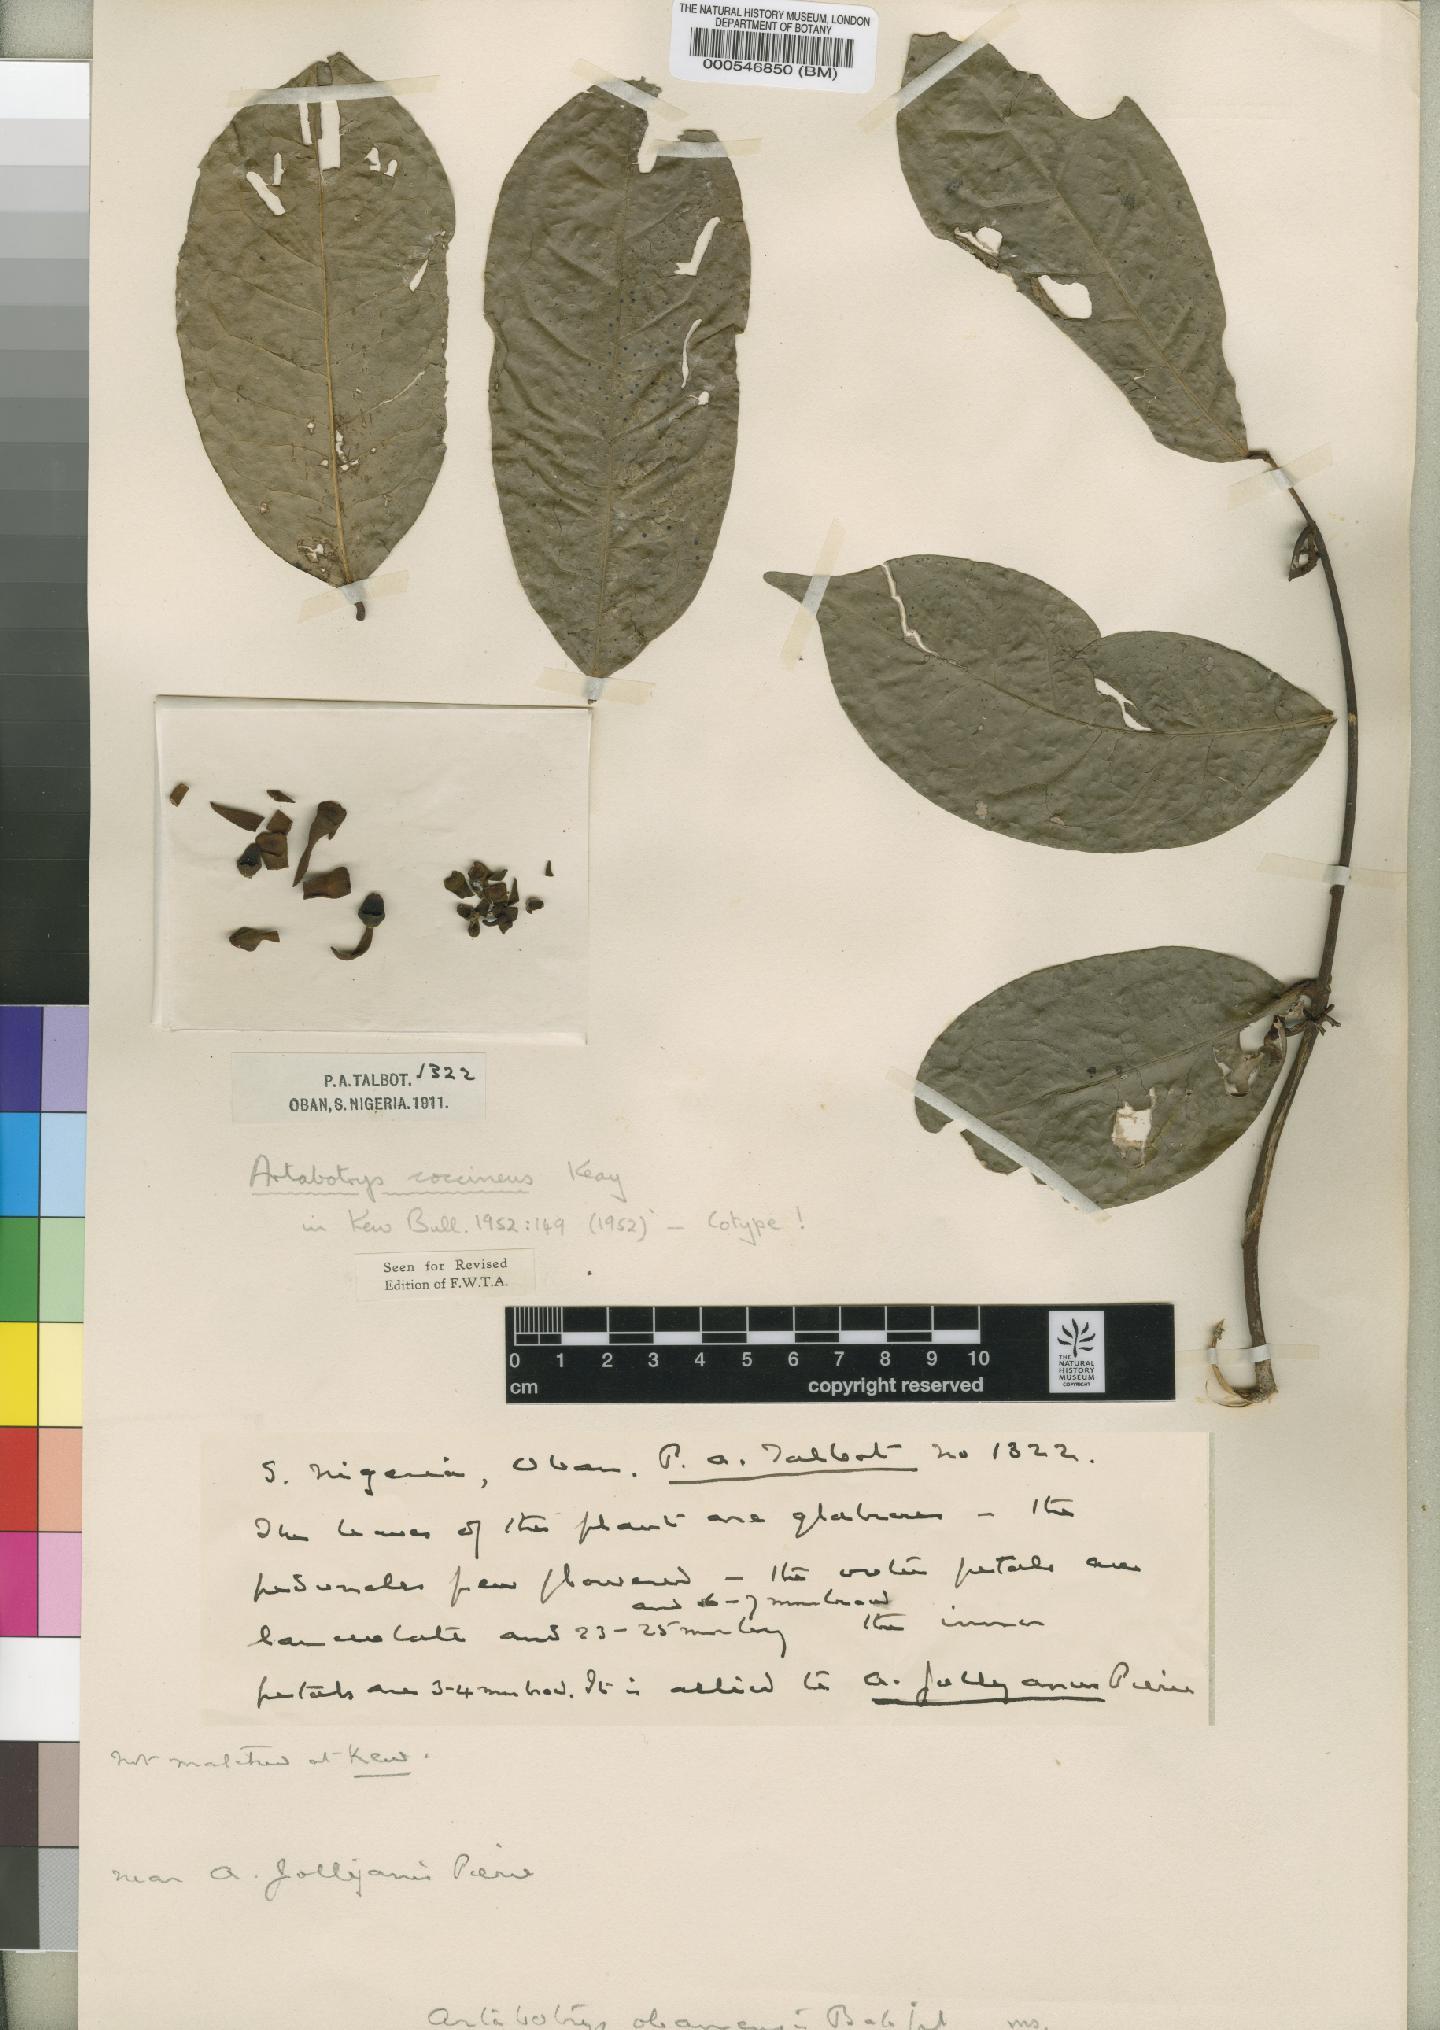 THE NATURAL HISTORY MUSEUM, LONDON
DEPARTMENT OF BOTANY
000546850 (BM)
P. A. TALBOT. 1322
OBAN, S. NIGERIA. 1911.
Artabotrys coccineus Keay
in Kew Bull. 1952: 149 (1952) - Cotype!
Seen for Revised
Edition of F.W.T.A.
0 1 2 3 4 5 6 7 8 9 10
cm copyright reserved
THE
NATURAL
HISTORY
MUSEUM
COPYRIGHT
S. Nigeria, Oban. P. A. Talbot No 1322.
The leaves of this plant are glabrous - the
peduncles few flowered - the outer petals are
and 6-7 mm broad
lanceolate and 23-25 mm long the inner
petals are 3-4 mm broad. It is allied to A. Jollyanus Pierre
Not matched at Kew.
near A. Jollyanus Pierre
Artabotrys obanensis Bak. fil. ms.